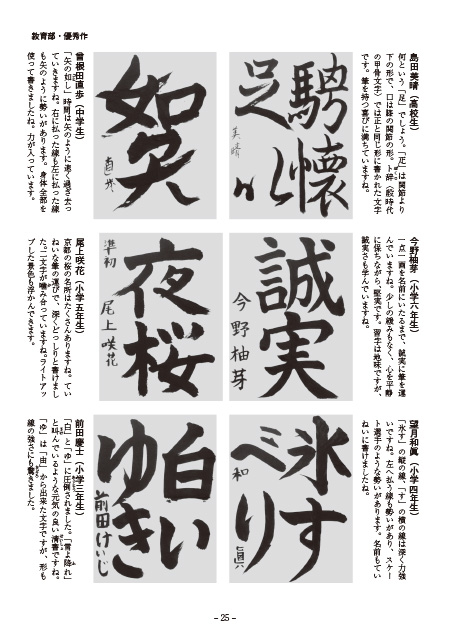 教育部・優秀作
島田美晴（高校生）
何という「足」でしょう。「疋」は関節より
下の形で、口は膝の関節の形。ト辞（殷時代
の甲骨文字）では正と同じ形に書かれた文字
です。筆を持つ喜びに満ちていますね。
騁懐
足以
美晴
曾根田直歩（中学生）
「矢の如し」時間は矢のように速く過ぎ去っ
ていきますね。右に払った線も左に払った線
も矢のように勢いがあります。身体全部を
使って書きましたね。力が入っています。
如矢
直歩
今野柚芽（小学六年生）
一点一画を名前にいたるまで、誠実に筆を運
んでいますね。少しの緩みもなく、心を平静
に保ちながら、堅実です。習字は地味ですが、
誠実さも学んでいますね。
誠実
今野柚芽
尾上咲花（小学五年生）
京都の桜の名所はたくさんありますね。てい
ねいな筆の運びで、深くどっしりと書けまし
た。二文字が噛み合っていますね。ライトアッ
プした景色も浮かんできます。
夜桜
準初 尾上咲花
望月和眞（小学四年生）
「氷す」の縦の線、「す」の横の線は深く力強
いですね。左へ払う線も勢いがあり、スケー
ト選手のような勢いがあります。名前もてい
ねいに書けましたね。
氷す
べり
和眞
前田慶士（小学三年生）
「白」と「ゆ」に圧倒されました。「雪よ降れ」
と叫んでいるような元気の良い清書ですね。
「ゆ」は「由」から出来た文字ですが、形も
線の強さにも驚きました。
白い
ゆき
前田けいじ
- 25 -